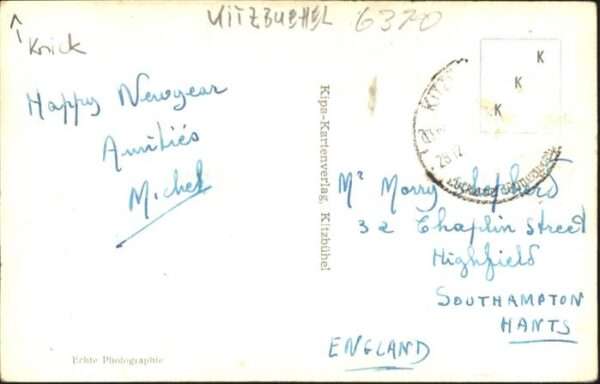 KITZBUEHEL 6370
Knick
Happy Newyear
Amitiés
Michel
Kipa-Kartenverlag, Kitzbühel
K
K
K
KITZ
28.12
Mr Morry Shepherd
32 Chaplin Street
Highfield
SOUTHAMPTON
HANTS
ENGLAND
Echte Photographie